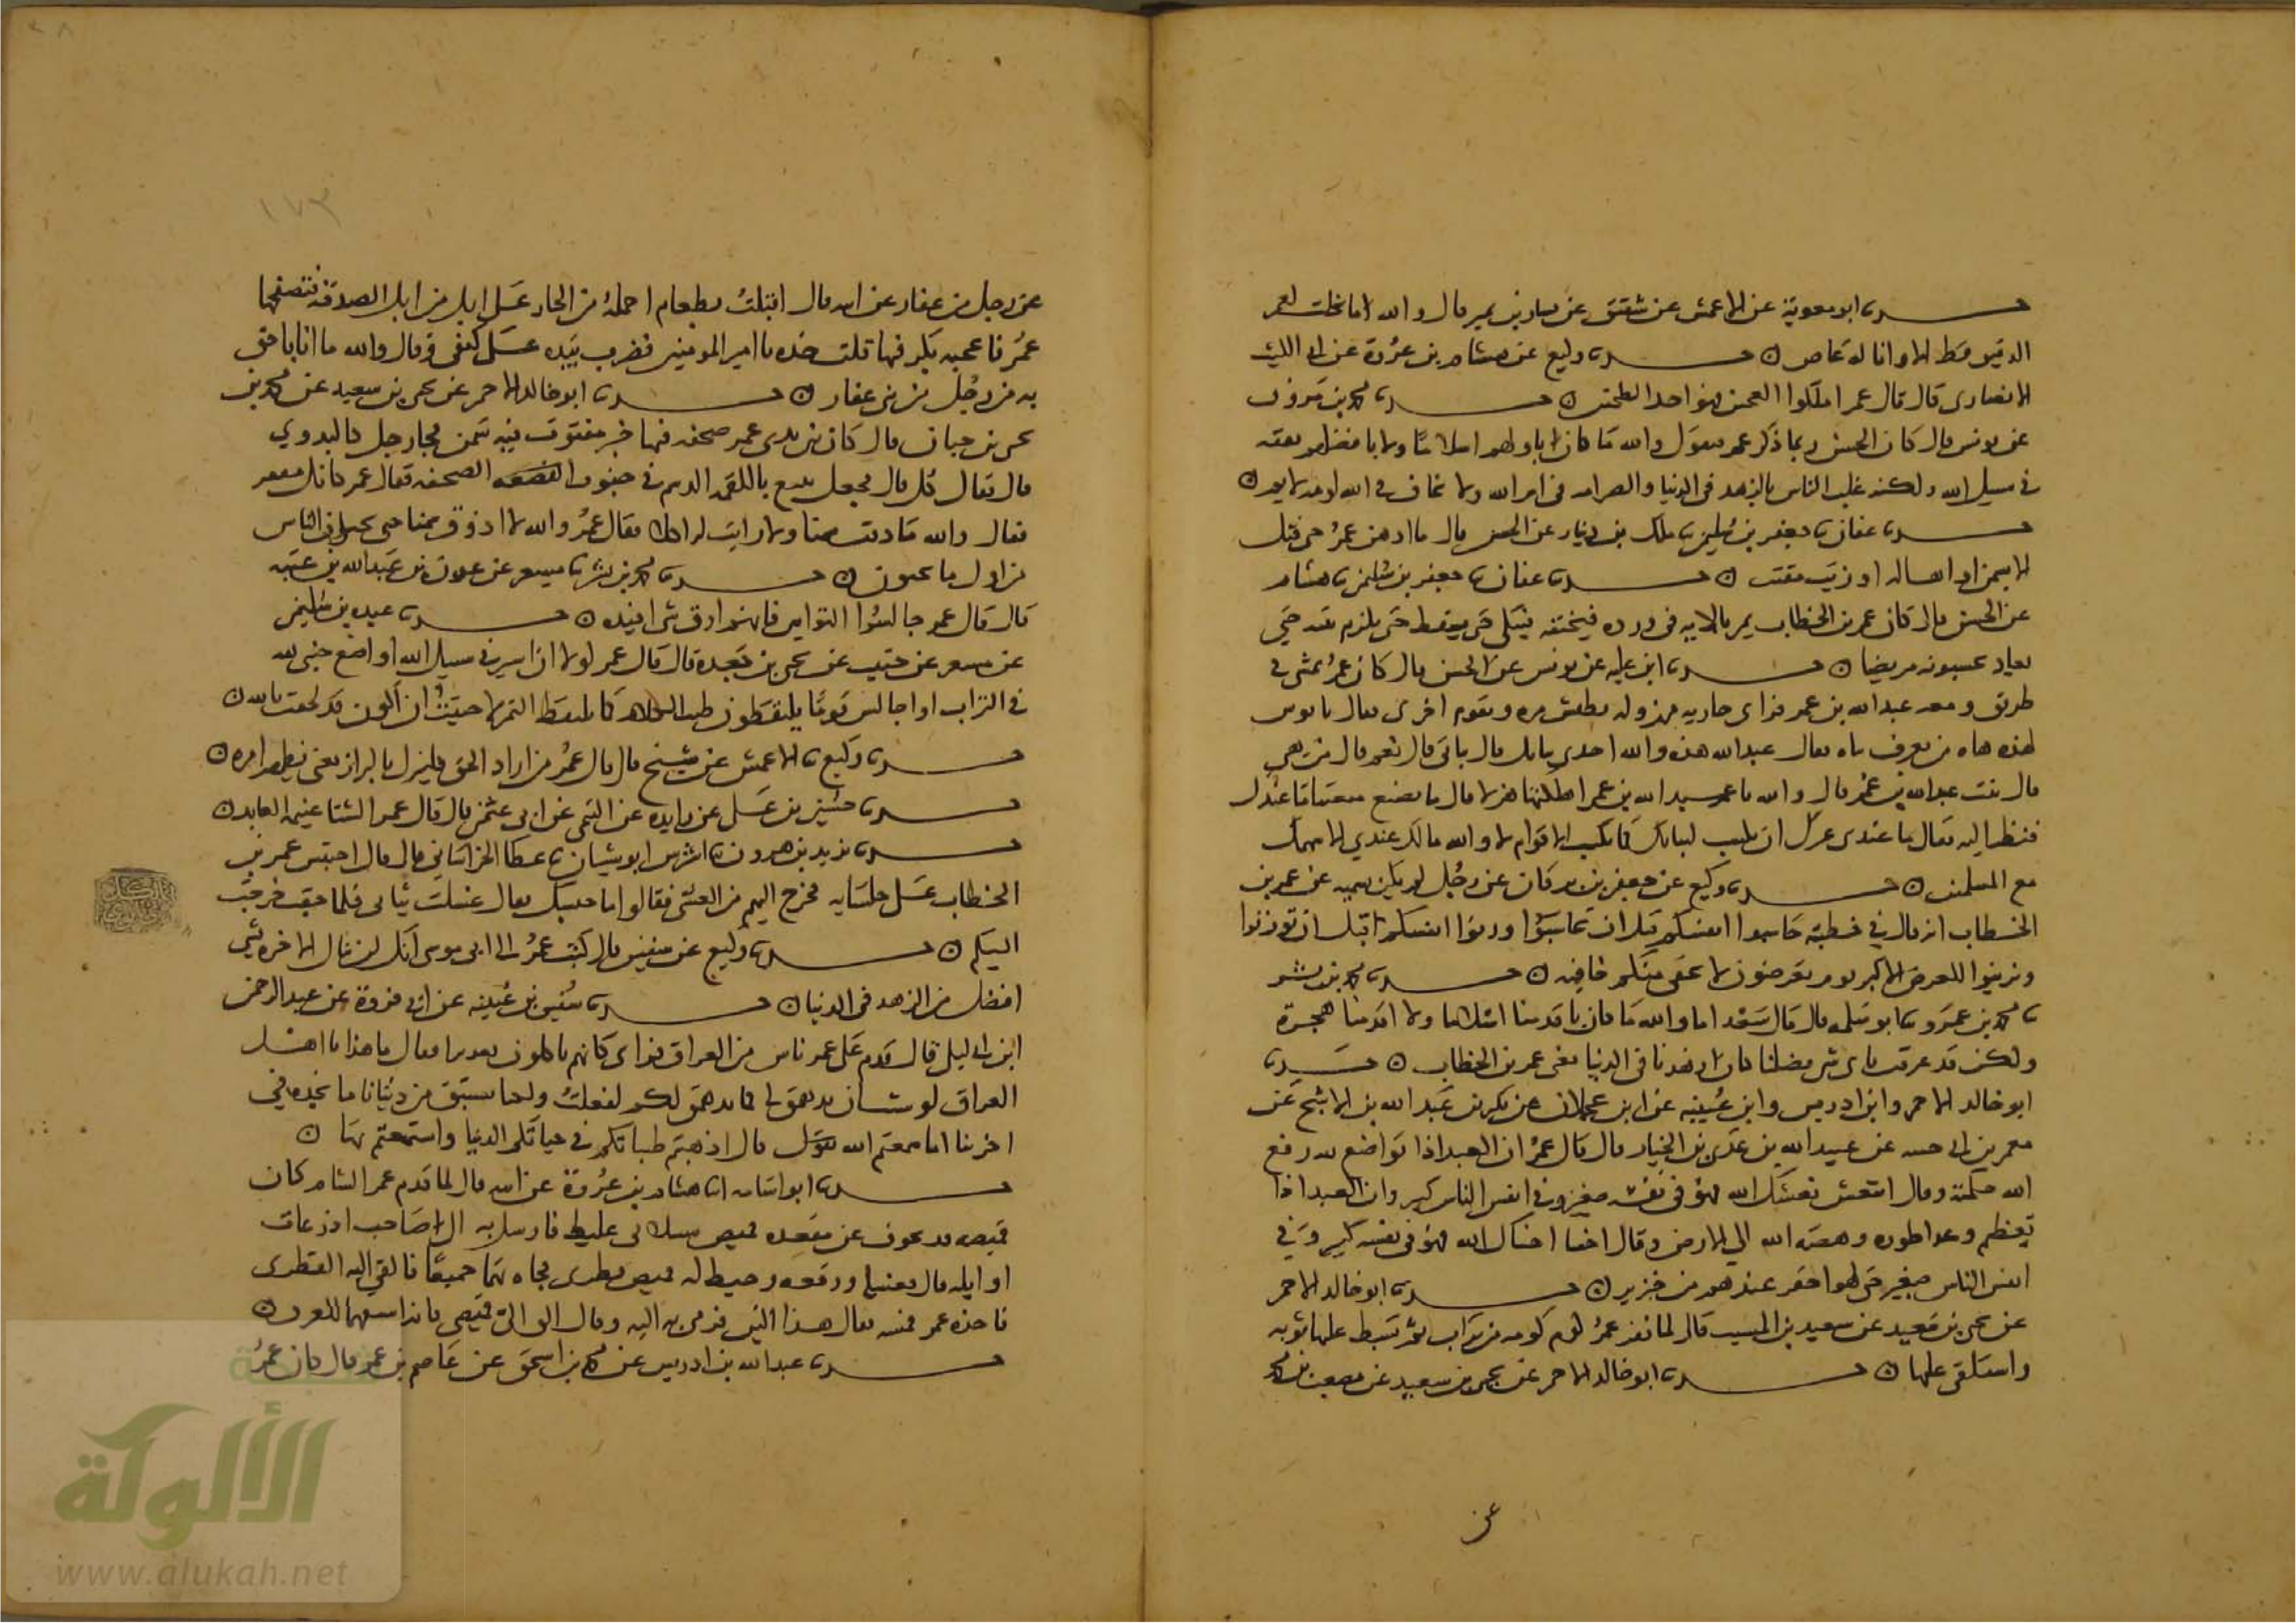 حدثنا ابو معوية عن الاعمش عن شقيق عن يسار بن نمير قال والله ما نخلت لعمر
الدقيق قط الا وانا له عاص حدثنا وكيع عن هشام بن عروة عن ابي الليث
الانصاري قال قال عمر املكوا العجين فهو احد الطحنين حدثنا محمد بن مروان
عن يونس قال كان الحسن ربما ذكر عمر فيقول والله ما كان باولهم اسلاما ولا بافضلهم نفقة
في سبيل الله ولكنه غلب الناس بالزهد في الدنيا والصرامة في امر الله ولا يخاف في الله لومة لايم
حدثنا عفان نا جعفر بن سليمن نا ملك بن دينار عن الحسن قال ما ادهن عمر حتى قتل
الا بسمن او اهالة او زيت مقتت حدثنا عفان نا جعفر بن سليمن نا هشام
عن الحسن قال كان عمر بن الخطاب يمر بالاية في ورده فتخنقه فيبكي حتى يسقط حتى يلزم بيته حتى
يعاد يحسبونه مريضا حدثنا ابن علية عن يونس عن الحسن قال كان عمر يمشي في
طريق ومعه عبد الله بن عمر فراى جارية مهزولة تطيش مرة وتقوم اخرى فقال يا بوس
لهذه هاه من يعرف تياه فقال عبد الله هذه والله احدى بناتك قال بناتي قال نعم قال من هي
قال بنت عبد الله بن عمر قال
فنظر اليه فقال ما عندي عزك ان تكسب لبناتك كما تكسب الاقوام لا والله مالك عندي الا سهمك
مع المسلمين حدثنا وكيع عن جعفر بن برقان عن رجل لم يكن يسميه عن عمر بن
الخطاب انه قال في خطبته حاسبوا انفسكم قبل ان تحاسبوا وزنوا انفسكم قبل ان توزنوا
وتزينوا للعرض الاكبر يوم تعرضون لا تخفى منكم خافية حدثنا محمد بن بشر
نا محمد بن عمرو نا ابو سلمة قال قال سعد اما والله ما كان باقدمنا اسلاما ولا اقدمنا هجرة
ولكن قد عرفت باي شي فضلنا كان ازهدنا في الدنيا يعني عمر بن الخطاب حدثنا
ابو خالد الاحمر وابن ادريس وابن عيينة عن ابن عجلان عن بكير بن عبد الله بن الاشج عن
معمر بن ابي حبيبة عن عبيد الله بن عدي بن الخيار قال قال عمر ان العبد اذا تواضع لله رفع
الله حكمته وقال انتعش نعشك الله فهو في نفسه صغير وفي انفس الناس كبير وان العبد اذا
تعظم وعدا طوره وهصه الله الى الارض وقال اخسا اخساك الله فهو في نفسه كبير وفي
انفس الناس صغير حتى لهو احقر عندهم من خنزير حدثنا ابو خالد الاحمر
عن يحيى بن سعيد عن سعيد بن المسيب قال لما نفر عمر كوم كومة من تراب ثم بسط عليها ثوبه
واستلقى عليها حدثنا ابو خالد الاحمر عن يحيى بن سعيد عن مصعب بن محمد
عن
١٧٣
عن رجل من غفار عن ابيه قال اقبلت بطعام احمله من الجار على ابل من ابل الصدقة فتصفحها
عمر فاعجبه بكر فيها قلت خذه يا امير المومنين فضرب بيده على كتفي وقال والله ما انا باحق
به من رجل من بني غفار حدثنا ابو خالد الاحمر عن يحيى بن سعيد عن محمد بن
يحيى بن حبان قال كان بين يدي عمر صحفة فيها خبز مفتوت فيه سمن فجا رجل كالبدوي
قال فقال كل قال فجعل يتبع باللقمة الدسم في جنوب الصحفة فقال عمر كانك مقفر
فقال والله ما ذقت سمنا ولا رايت له اكلا فقال عمر والله لا اذوق سمنا حتى يحيا الناس
من اول ما يحيون حدثنا محمد بن بشر نا مسعر عن عون بن عبد الله بن عتبة
قال قال عمر جالسوا التوابين فانهم ارق شي افيدة حدثنا عبدة بن سليمن
عن مسعر عن حبيب عن يحيى بن جعدة قال قال عمر لولا ان اسير في سبيل الله او اضع جنبي لله
في التراب او اجالس قوما يلتقطون طيب الكلام كما يلتقط التمر لاحببت ان اكون قد لحقت بالله
حدثنا وكيع نا الاعمش عن شيخ قال قال عمر من اراد الحق فلينزل بالبراز يعني يظهر امره
حدثنا حسين بن علي عن زايدة عن التيمي عن ابي عثمن قال قال عمر الشتا غنيمة العابد
حدثنا يزيد بن هرون نا اشرس ابو شيبان نا عطا الخراساني قال قال احتبس عمر بن
الخطاب على جلسايه فخرج اليهم من العشي فقالوا ما حبسك فقال غسلت ثيابي فلما جفت خرجت
اليكم حدثنا وكيع عن سفين قال كتب عمر الى ابي موسى انك لن تنال الاخرة بشي
افضل من الزهد في الدنيا حدثنا سفين بن عيينة عن ابي فروة عن عبد الرحمن
ابن ابي ليلى قال قدم على عمر ناس من العراق فراى كانهم ياكلون تعذيرا فقال ما هذا يا اهل
العراق لو شئت ان يدهمق لي كما يدهمق لكم لفعلت ولكنا نستبقي من دنيانا ما نجده في
اخرتنا اما سمعتم الله يقول قال اذهبتم طيباتكم في حياتكم الدنيا واستمتعتم بها
حدثنا ابو اسامة انا هشام بن عروة عن ابيه قال لما قدم عمر الشام كان
قميصه قد تجوب عن مقعده قميص سنبلاني غليظ فارسل به الى صاحب اذرعات
او ايلة قال فغسله ورقعه وخيط له قميص قطري فجاه بهما جميعا فالقى اليه القطري
فاخذه عمر فمسه فقال هذا الين فرمى به اليه وقال الق الي قميصي فانه انشفهما للعرق
حدثنا عبد الله بن ادريس عن محمد بن اسحق عن عاصم بن عمر قال كان عمر
الألوكة
www.alukah.net